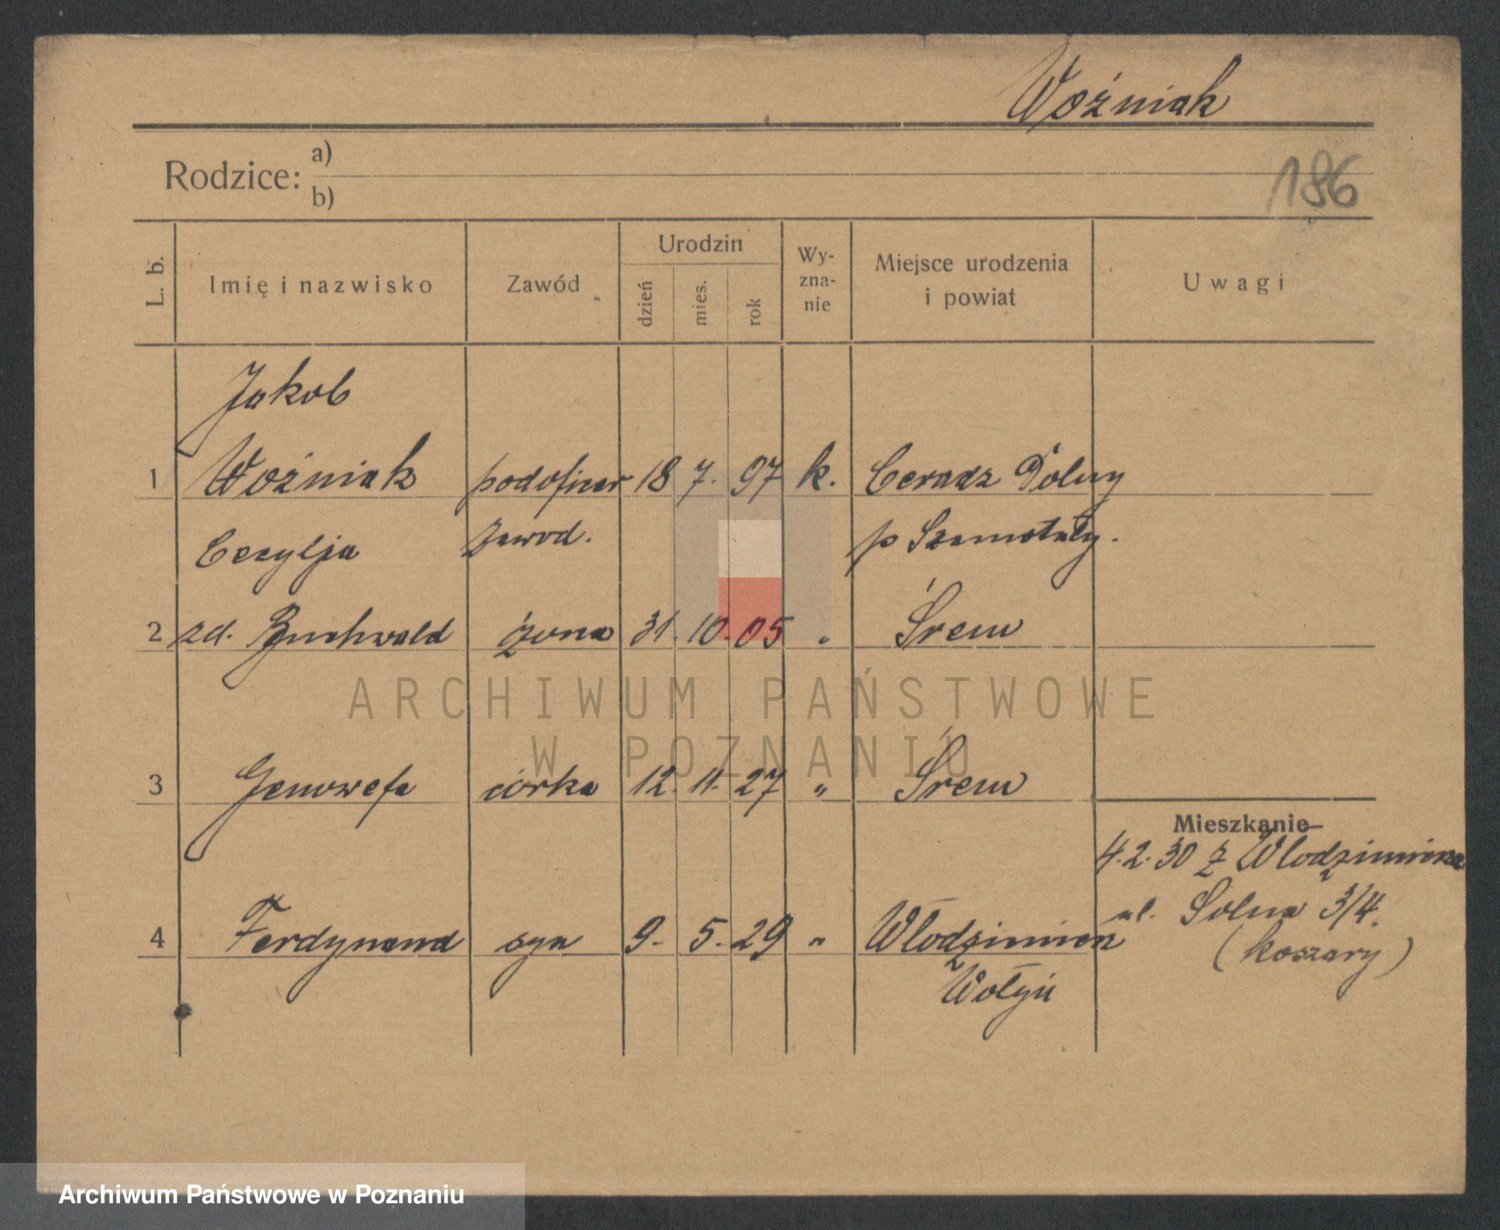 Woźniak
Rodzice: a)
b)
186
L. b.
Imię i nazwisko
Zawód
Urodzin
dzień
mies.
rok
Wy-
zna-
nie
Miejsce urodzenia
i powiat
Uwagi
Jakob
1 Woźniak podoficer 18 7. 97 k. Ceradz Dolny
Cecylja zawod. p Szamotuły.
2 zd. Buchwald żona 31. 10. 05 " Śrem
3 Genowefa córka 12. 11. 27 " Śrem
Mieszkanie
4.2.30 z Włodzimierza
ul. Solna 3/4.
4 Ferdynand syn 9. 5. 29 " Włodzimierz
(koszary)
Wołyń
ARCHIWUM PAŃSTWOWE
W POZNANIU
Archiwum Państwowe w Poznaniu